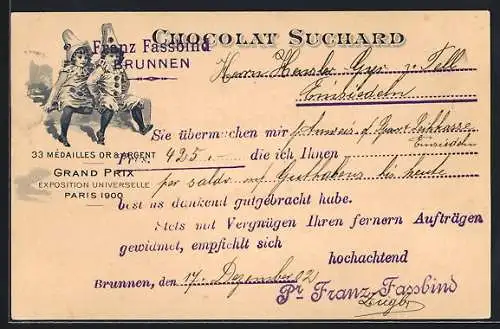 CHOCOLAT SUCHARD
Franz Fassbind
BRUNNEN
Herrn
Einsiedeln
Sie übermachen mir p.
Einsiedeln
Frs. 425.— die ich Ihnen
33 MÉDAILLES OR & ARGENT
GRAND PRIX
EXPOSITION UNIVERSELLE
PARIS 1900
per Saldo Guthabens bis heute
bestens dankend gutgebracht habe.
Stets mit Vergnügen Ihren fernern Aufträgen
gewidmet, empfiehlt sich
hochachtend
Brunnen, den 17. Dezember 02
Pr Franz Fassbind